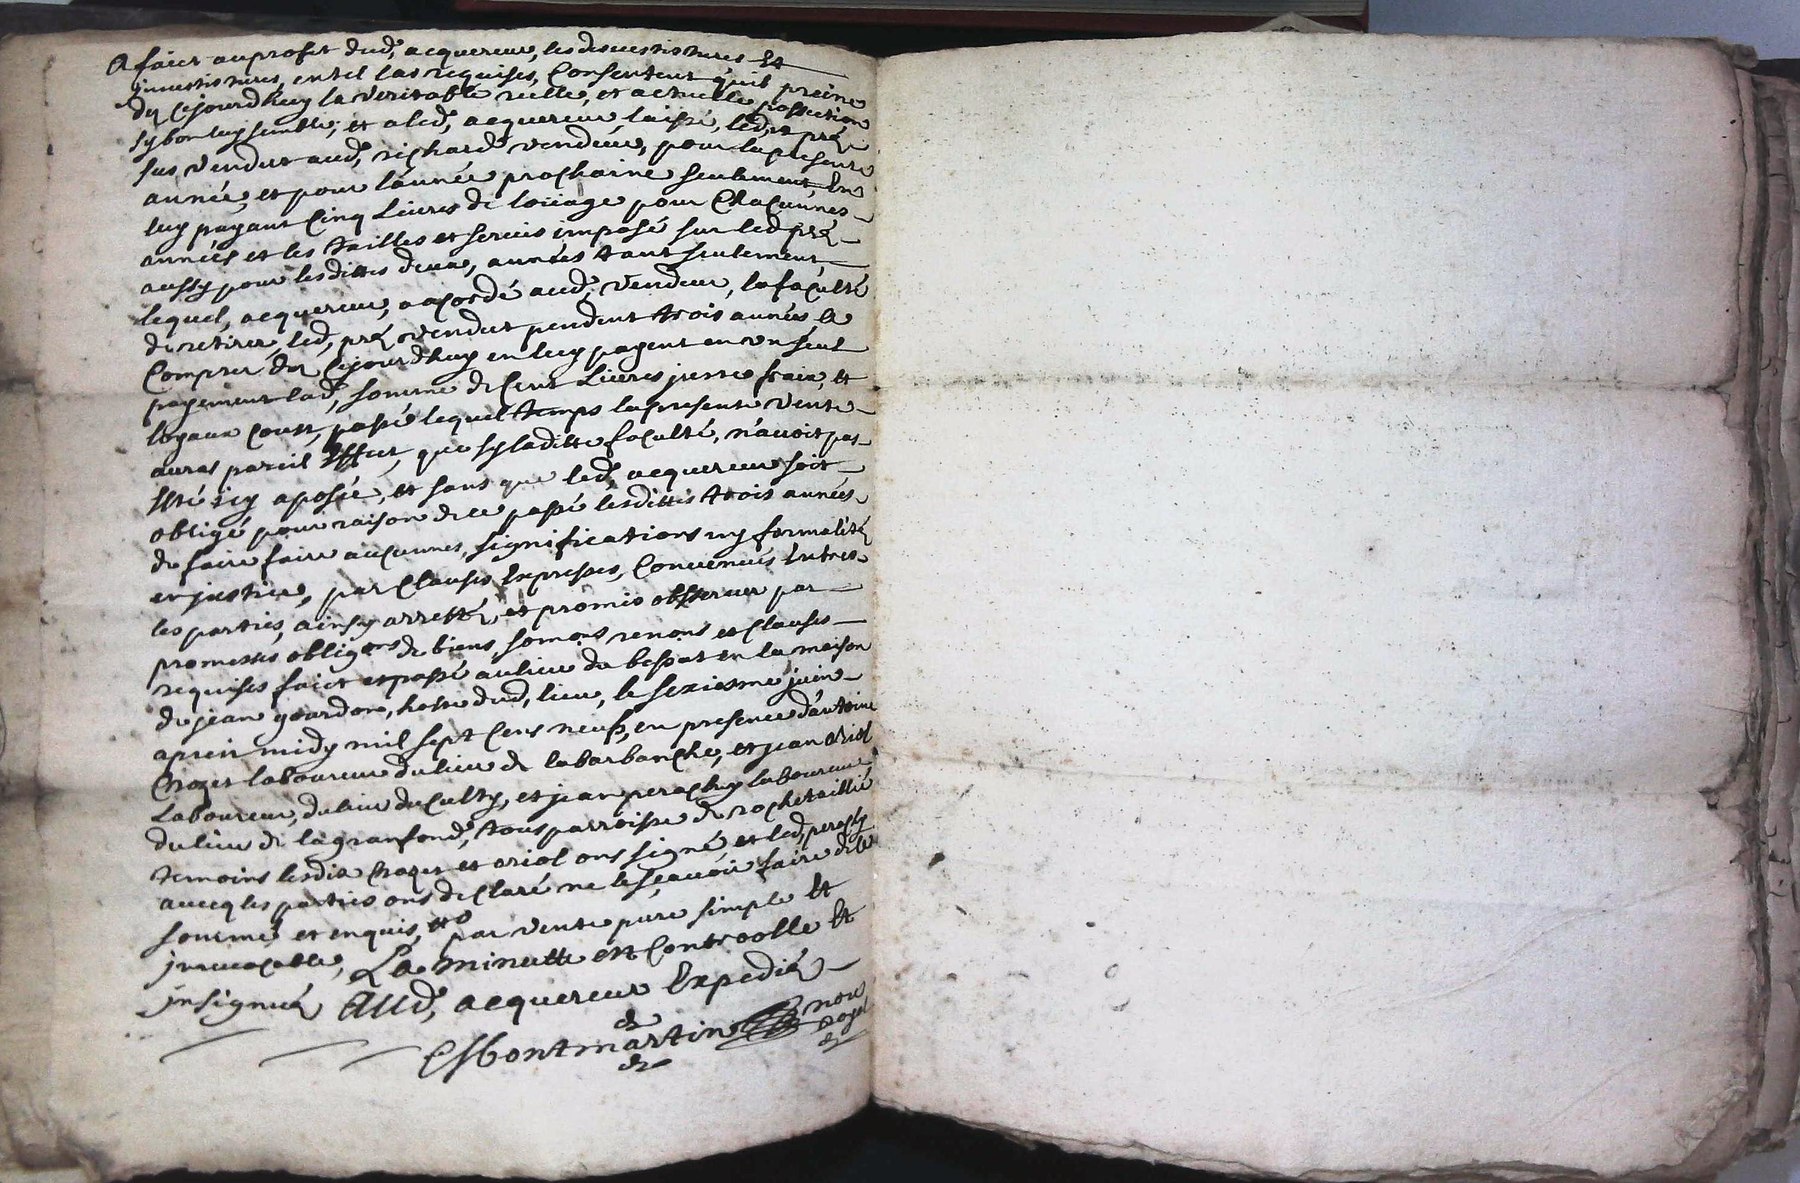 A faict au profit dud, acquereur, les desvestitures et
jnvestitures, en tel cas requises, Consenteut quil preine
dez Cejourdhuy la veritable reelle, et actuelle possection
sy bon luy semble; et a led, acquereur laissé, led, pré
sus vendut aud, richard vendeur, pour la presente
année, et pour lannée prochaine seulement, En
luy payant Cinq Livres de loüage pour Chacunnes
années et les tailles et servis imposé sur led pré
aussy pour les dittes deux, années tant seulement
lequel, acquereur, a acordé aud, vendeur, la faculté
de retirer, led, pré vendut pendent trois années a
Compter dez Cejourdhuy en luy payent en un seul
payement lad, somme de Cent Livres juste fraix, et
loyaux coust, passé lequel temps la presente vente
auras pareil Effect, que sy laditte faculté, n'avoit pas
Esté icy aposée, et sans que led, acquereur soit
obligé pour raison de ce passé lesdittes trois années
de faire faire aucunnes, significations ny formalités
en justice, par Clauses Expresses, Convenues Entres
les parties, ainsy arrettés, et promis observer par
promesses obligons de biens, somons renons et Clauses
requises faict et passé au lieu du bessat en la maison
de jean gourdon, hoste dud, lieu, le seziesme juin
apres midy mil sept Cens neuf, en presence d'antoine
Crozet laboureur du lieu de la barbanche, et jean oriol
Laboureur, du lieu du Culty, et jean perachy laboureur
du lieu de la granfond, tous parroisse de rochetaillié
temoins lesdis Crozet et oriol ons signé et led, perachy
avecq les parties ons declaré ne le sçavoir faire de ce
sommé et enquis, par vente pure simple et
jrrevocable, La minutte est Controolle et
jnsignuée Aud, acquereur Expediée
Montmartin nore
royal